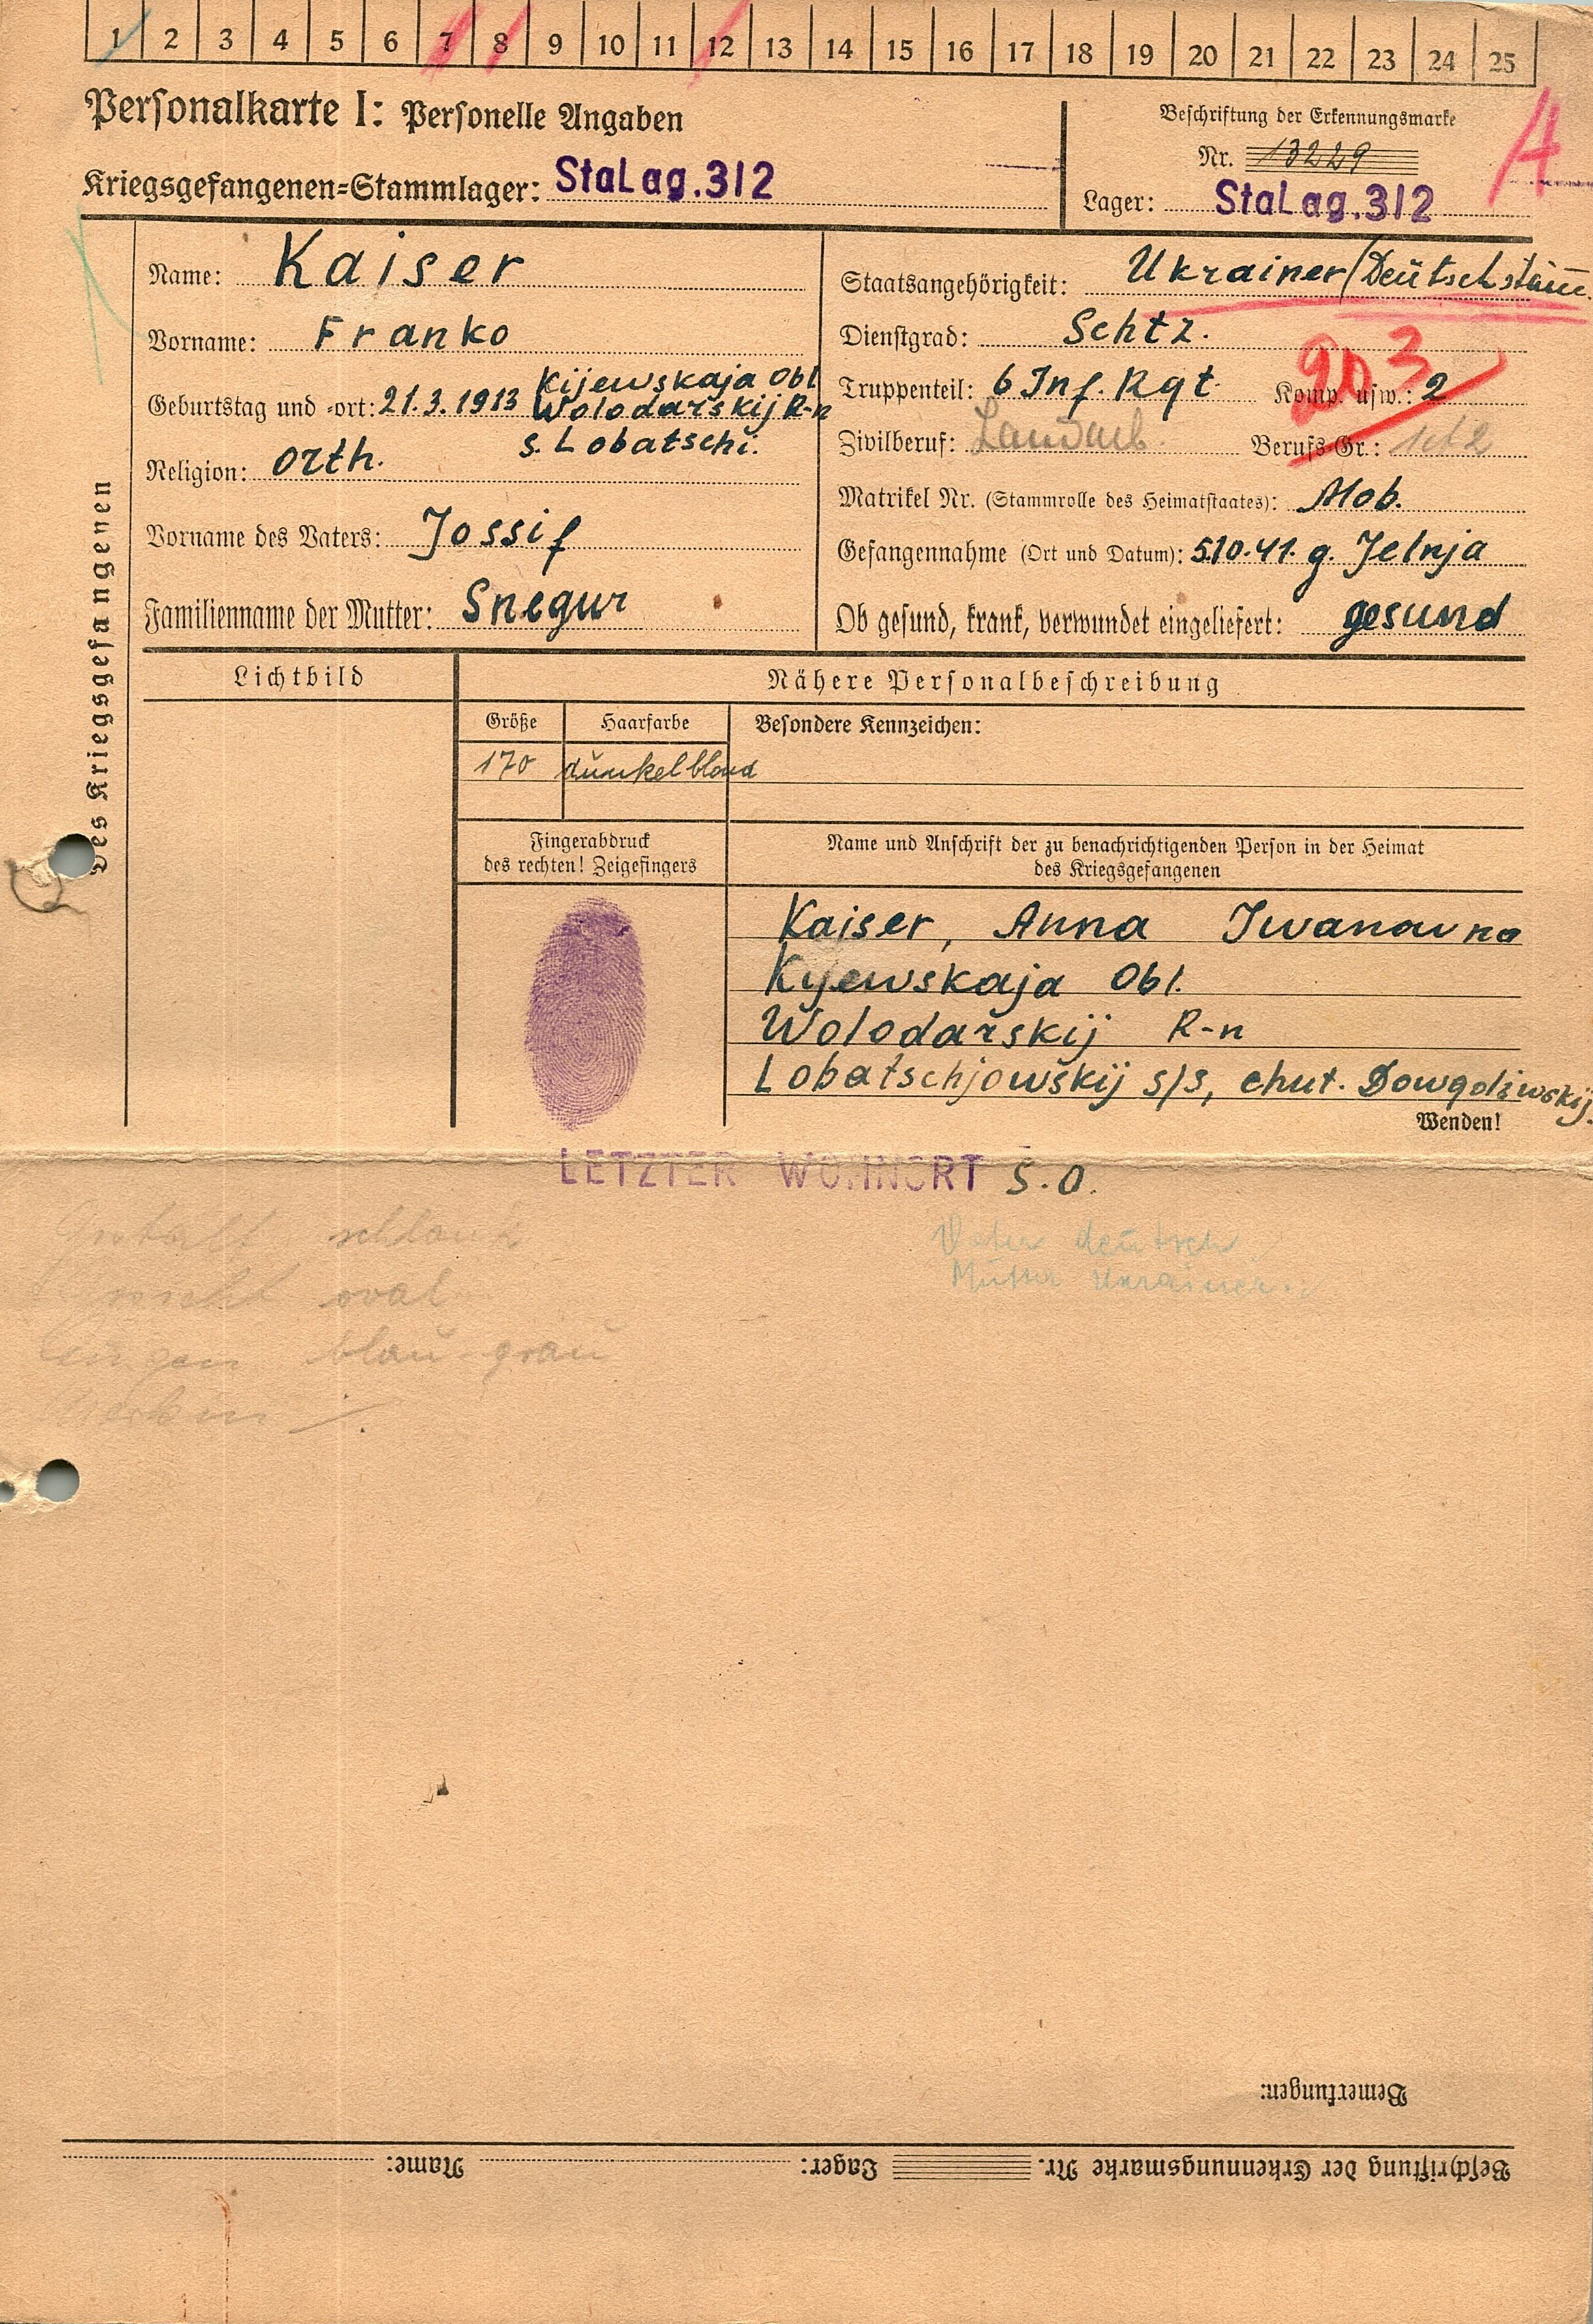 1 2 3 4 5 6 7 8 9 10 11 12 13 14 15 16 17 18 19 20 21 22 23 24 25
Personalkarte I: Personelle Angaben
Kriegsgefangenen-Stammlager: StaLag.312
Beschriftung der Erkennungsmarke
Nr. 13229
Lager: StaLag.312
A
Des Kriegsgefangenen
Name: Kaiser
Vorname: Franko
Geburtstag und -ort: 21.3.1913 Kijewskaja Obl
Wolodarskij R-n
s. Lobatschi.
Religion: Orth.
Vorname des Vaters: Jossif
Familienname der Mutter: Snegur
Staatsangehörigkeit: Ukrainer/Deutschstäm.
Dienstgrad: Schtz.
Truppenteil: 6 Inf. Rgt. Komp. usw.: 2
203
Zivilberuf: Landarb. Berufs-Gr.:
Matrikel Nr. (Stammrolle des Heimatstaates): Mob.
Gefangennahme (Ort und Datum): 5.10.41. g. Jelnja
Ob gesund, krank, verwundet eingeliefert: gesund
Lichtbild
Nähere Personalbeschreibung
Größe Haarfarbe Besondere Kennzeichen:
170 dunkelblond
Fingerabdruck
des rechten! Zeigefingers
Name und Anschrift der zu benachrichtigenden Person in der Heimat
des Kriegsgefangenen
Kaiser, Anna Iwanowna
Kijewskaja Obl.
Wolodarskij R-n
Lobatschjowskij s/s, chut.
Wenden!
LETZTER WOHNORT S.O.
Gestalt schlank
Gesicht oval
Augen blau-grau
Vater deutsch
Mutter Ukrainer.
Bemerkungen:
Beschriftung der Erkennungsmarke Nr. Lager: Name: